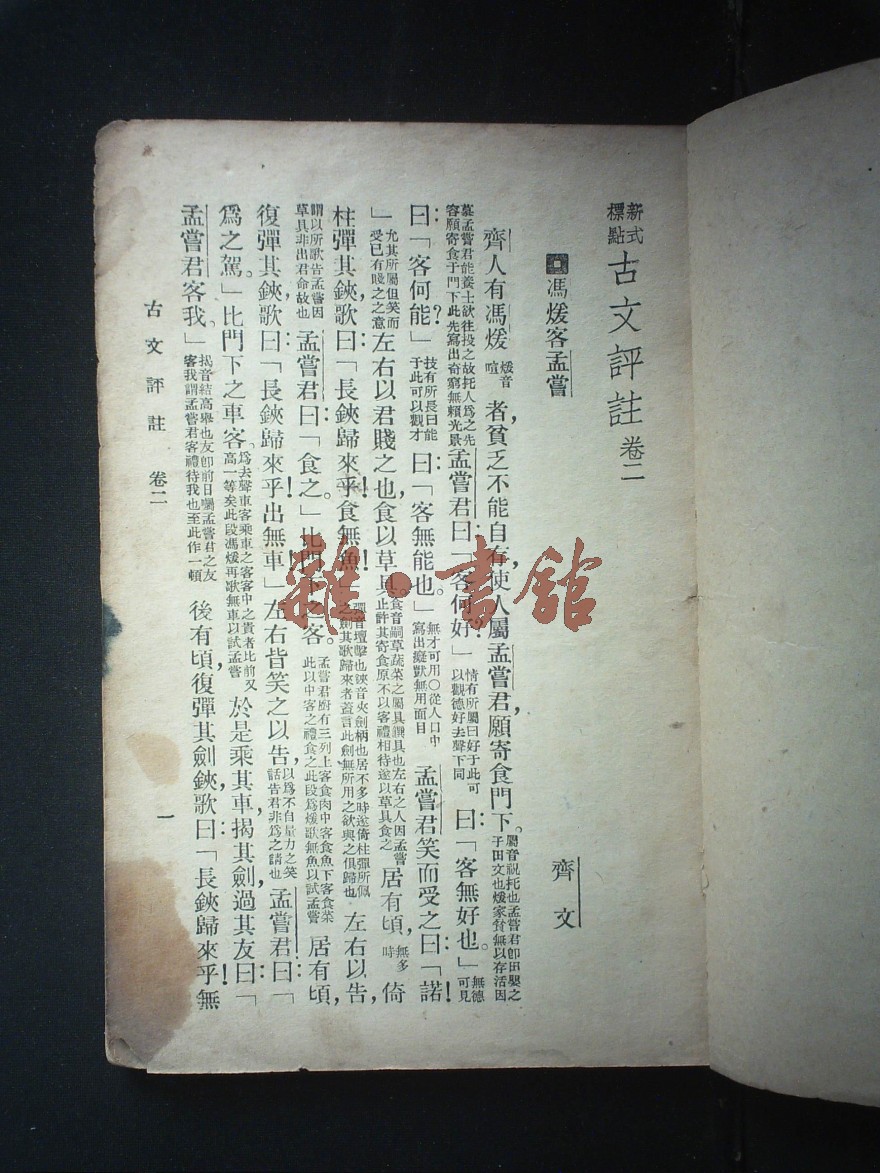 新式標點 古文評註 卷二
馮煖客孟嘗
齊文
齊人有馮煖煖音喧者,貧乏不能自存,使人屬孟嘗君,願寄食門下。屬音祝托也孟嘗君卽田嬰之子田文也煖家貧無以存活因
慕孟嘗君能養士欲往投之故托人爲之先容願寄食于門下此先寫出奇窮無賴光景孟嘗君曰:「客何好?」情有所屬曰好于此可以觀德好去聲下同曰:「客無好也。」無德可見
曰:「客何能?」技有所長曰能于此可以觀才曰:「客無能也。」無才可用○從人口中寫出癡獃無用面目孟嘗君笑而受之曰:「諾!
」允其所屬但笑而受已有賤之之意左右以君賤之也,食以草具。食音嗣草蔬菜之屬具饌具也左右之人因孟嘗止許其寄食原不以客禮相待遂以草具食之居有頃,無多時倚
柱彈其鋏,歌曰:「長鋏歸來乎!食無魚!」彈音壇擊也鋏音夾劍柄也居不多時遂倚柱彈所佩之劍其歌歸來者蓋言此劍無所用之欲與之俱歸也左右以告,
謂以所歌告孟嘗因草具非出君命故也孟嘗君曰:「食之。」比門下之客。孟嘗君廚有三列上客食肉中客食魚下客食菜此以中客之禮食之此段爲煖歌無魚以試孟嘗居有頃
復彈其鋏,歌曰:「長鋏歸來乎!出無車!」左右皆笑之,以告,以爲不自量力之笑話告君非爲之請也孟嘗君曰:「
爲之駕。」比門下之車客。爲去聲車客乘車之客客中之貴者比前又高一等矣此段馮煖再歌無車以試孟嘗於是乘其車,揭其劍,過其友曰:「
孟嘗君客我。」揭音結高舉也友卽前日囑孟嘗君之友客我謂孟嘗君客禮待我也至此作一頓後有頃,復彈其劍鋏,歌曰:「長鋏歸來乎!無
古文評註 卷二 一
雜·書館